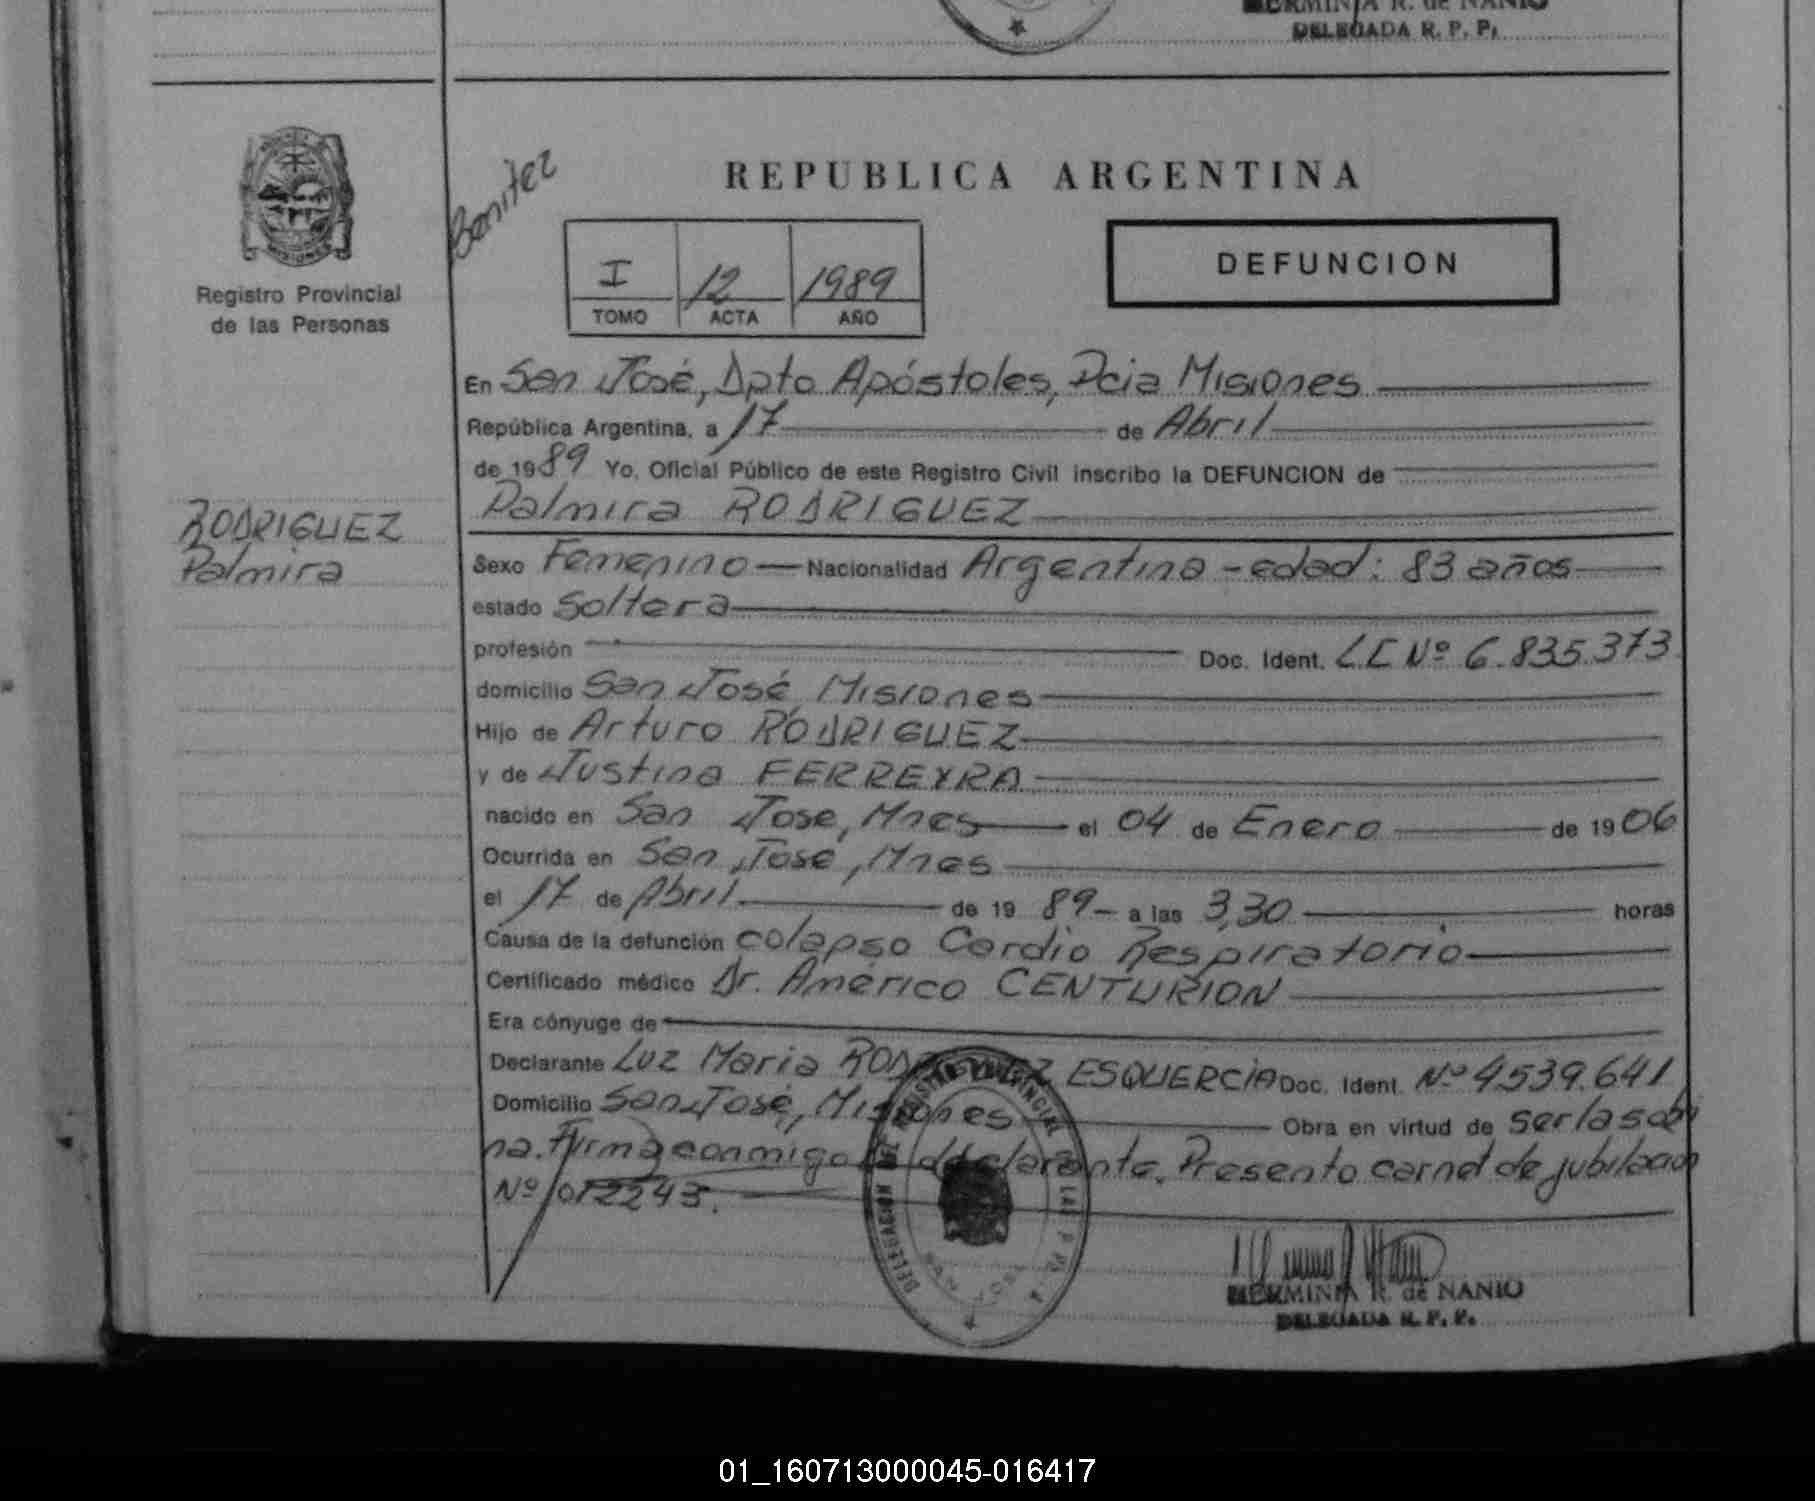 HERMINIA R. de NANIO
DELEGADA R. P. P.
Registro Provincial
de las Personas
RODRIGUEZ
Palmira
Benitez
REPUBLICA ARGENTINA
I 12 1989
TOMO ACTA AÑO
DEFUNCION
En San José, Dpto Apóstoles, Pcia Misiones
República Argentina, a 17 de Abril
de 1989 Yo, Oficial Público de este Registro Civil inscribo la DEFUNCION de
Palmira RODRIGUEZ
Sexo Femenino — Nacionalidad Argentina - edad: 83 años
estado Soltera
profesión Doc. Ident. L.C Nº 6.835.373
domicilio San José, Misiones
Hijo de Arturo RODRIGUEZ
y de Justina FERREYRA
nacido en San Jose, Mnes el 04 de Enero de 1906
Ocurrida en San José, Mnes
el 17 de Abril de 19 89 - a las 3,30 horas
Causa de la defunción colapso Cardio Respiratorio
Certificado médico Dr. Américo CENTURION
Era cónyuge de
Declarante Luz Maria RODRIGUEZ ESQUERCIA Doc. Ident. Nº 4.539.641
Domicilio San José, Misiones Obra en virtud de ser la sobri
na. Firma conmigo declarante. Presento carnet de jubilacion
Nº 012243.
DELEGACION DEL REGISTRO PROVINCIAL DE LAS P
SAN JOSE
HERMINIA R. de NANIO
DELEGADA R. P. P.
01_160713000045-016417